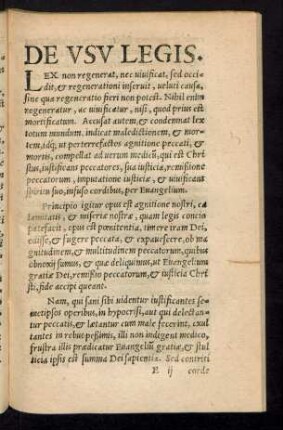 DE VSV LEGIS.
LEX non regenerat, nec uiuificat, sed occi-
dit, & regenerationi inseruit, ueluti causa,
sine qua regeneratio fieri non potest. Nihil enim
regeneratur, ac uiuificatur, nisi, quod prius est
mortificatum. Accusat autem, & condemnat lex
totum mundum, indicat maledictionem, & mor-
tem, idq; ut perterrefactos agnitione peccati, &
mortis, compellat ad uerum medicū, qui est Chri
stus, iustificans peccatores, sua iusticia, remissione
peccatorum, imputatione iusticiæ, & uiuificans
spiritu suo, infuso cordibus, per Euangelium.
Principio igitur opus est agnitione nostri, ca
lamitatis, & miseriæ nostræ, quam legis concio
patefacit, opus est pœnitentia, timere iram Dei,
odisse, & fugere peccata, & expauescere, ob ma
gnitudinem, & multitudinem peccatorum, quibus
obnoxij sumus, & quæ delinquimus, ut Euangelium
gratiæ Dei, remissio peccatorum, & iusticia Chri
sti, fide accipi queant.
Nam, qui sani sibi uidentur iustificantes se-
metipsos operibus, in hypocrisi, aut qui delectan-
tur peccatis, & lætantur cum male fecerint, exul
tantes in rebus peßimis, illi non indegent medico,
frustra illis prædicatur Euangeliū gratiæ, & stul
ticia ipsis est summa Dei sapientia. Sed contriti
E ij corde